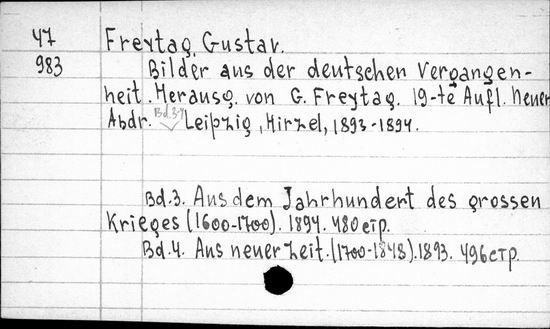 47 Freytag, Gustav.
983 Bilder aus der deutschen Vergangen-
heit. Herausg. von G. Freytag. 19-te Aufl. Neuer
Abdr. Bd.3-4 Leipzig, Hirzel, 1893-1894.
Bd.3. Aus dem Jahrhundert des grossen
Krieges (1600-1700). 1894. 480 стр.
Bd.4. Aus neuer Zeit. (1700-1848). 1893. 496 стр.